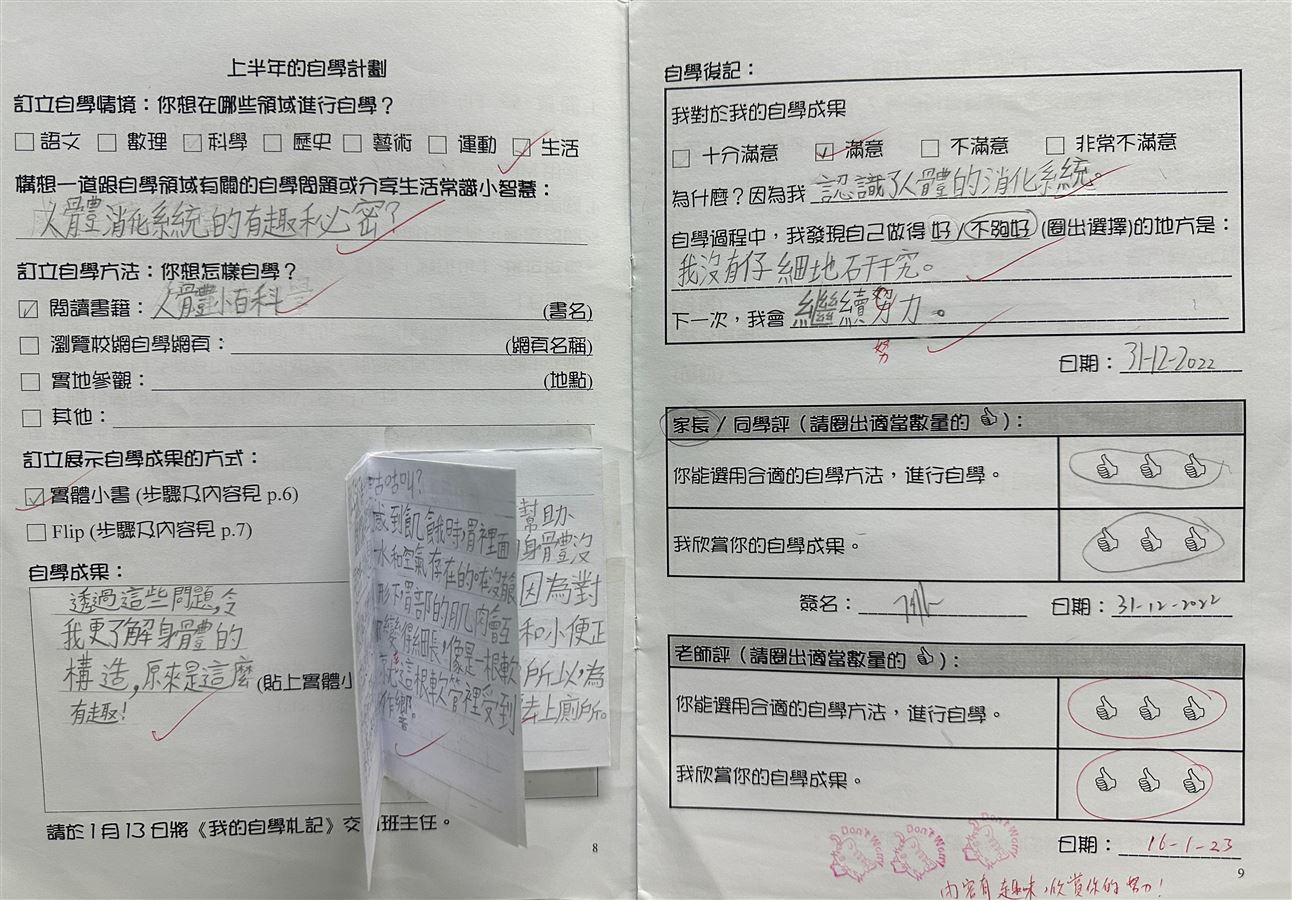 上半年的自學計劃
訂立自學情境：你想在哪些領域進行自學？
□語文 □ 數理 □科學 □ 歷史 □ 藝術 □ 運動 ☑ 生活
構想一道跟自學領域有關的自學問題或分享生活常識小智慧：
人體消化系統的有趣秘密？
訂立自學方法：你想怎樣自學？
☑ 閱讀書籍：人體小百科 (書名)
□ 瀏覽校網自學網頁： (網頁名稱)
□ 實地參觀： (地點)
□ 其他：
訂立展示自學成果的方式：
☑ 實體小書 (步驟及內容見 p.6)
□ Flip (步驟及內容見 p.7)
自學成果：
透過這些問題,令
我更了解身體的
構造,原來是這麼 (貼上實體小
有趣!
咕咕叫?
感到飢餓時,胃裡面
水和空氣存在的。在沒食
形下,胃部的肌肉會互
變得細長,像是一根軟
這根軟管裡受到
作響。
幫助
身體沒
因為對
和小便正
所以,為
去上廁所。
請於1月13日將《我的自學札記》交 班主任。
8
自學後記：
我對於我的自學成果
□ 十分滿意 ☑ 滿意 □ 不滿意 □ 非常不滿意
為什麼？因為我 認識了人體的消化系統。
自學過程中，我發現自己做得 好 / 不夠好 (圈出選擇)的地方是：
我沒有仔細地研究。
下一次，我會 繼續努力。
努
日期：31-12-2022
家長 / 同學評（請圈出適當數量的 👍）：
你能選用合適的自學方法，進行自學。 👍 👍 👍
我欣賞你的自學成果。 👍 👍 👍
簽名： 日期：31-12-2022
老師評（請圈出適當數量的 👍）：
你能選用合適的自學方法，進行自學。 👍 👍 👍
我欣賞你的自學成果。 👍 👍 👍
日期：16-1-23
Don't Worry Don't Worry Don't Worry
內容有趣味,欣賞你的努力!
9